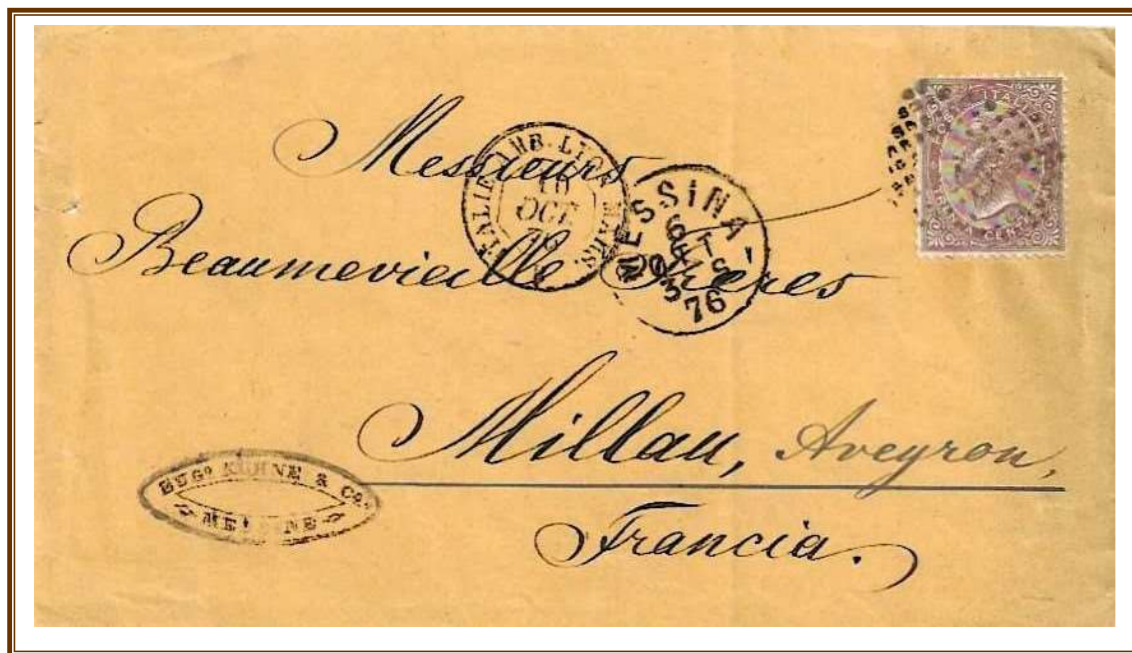 Messieurs
Beaumevieille Frères
Millau, Aveyron,
Francia.
ITALIE
10
OCT
76
MESSINA
6
76
EUGº KUHNE & Cº
MESSINE